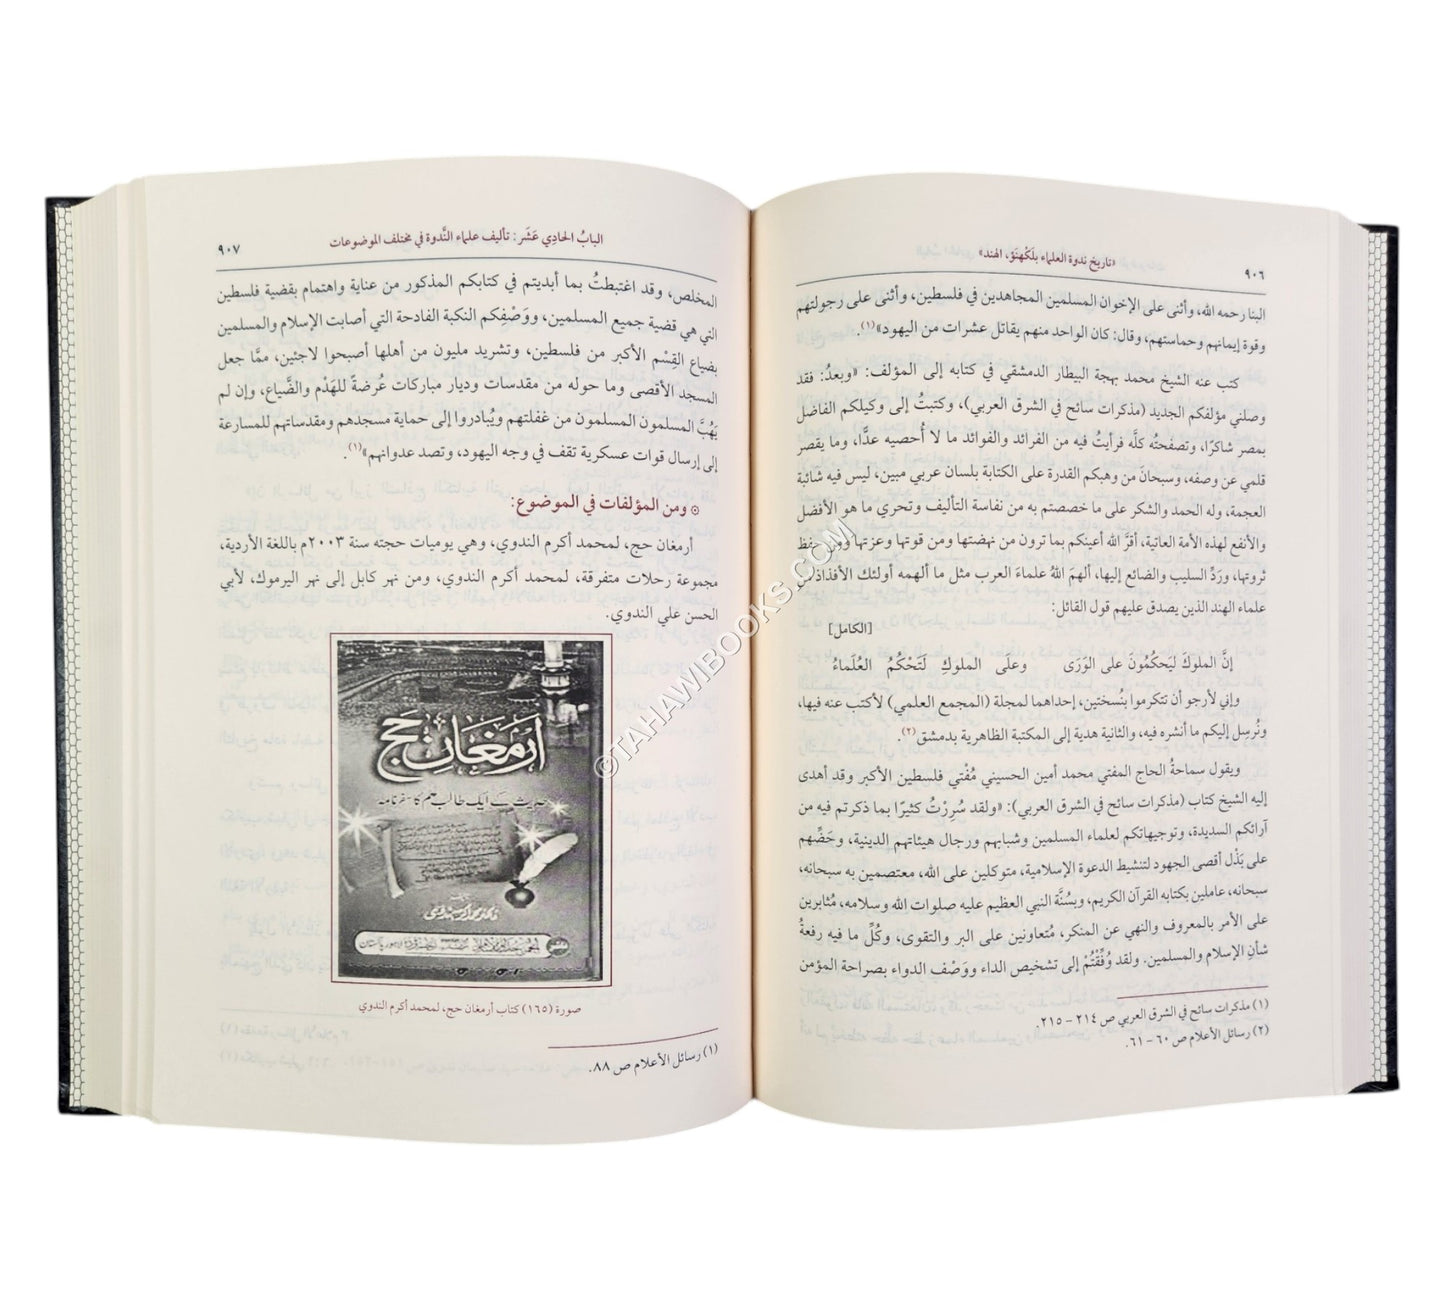 «تاريخ ندوة العلماء بلَكْهنَوْ، الهند»
٩٠٦
البنا رحمه الله، وأثنى على الإخوان المسلمين المجاهدين في فلسطين، وأثنى على رجولتهم
وقوة إيمانهم وحماستهم، وقال: كان الواحد منهم يقاتل عشرات من اليهود»(١).
كتب عنه الشيخ محمد بهجة البيطار الدمشقي في كتابه إلى المؤلف: «وبعدُ: فقد
وصلني مؤلفكم الجديد (مذكرات سائح في الشرق العربي)، وكتبتُ إلى وكيلكم الفاضل
بمصر شاكرًا، وتصفحتُه كلَّه فرأيتُ فيه من الفرائد والفوائد ما لا أُحصيه عدًّا، وما يقصر
قلمي عن وصفه، وسبحانَ من وهبكم القدرة على الكتابة بلسان عربي مبين، ليس فيه شائبة
العجمة، وله الحمد والشكر على ما خصصتم به من نفاسة التأليف وتحري ما هو الأفضل
والأنفع لهذه الأمة العاتية، أقرَّ الله أعينكم بما ترون من نهضتها ومن قوتها وعزتها ومن حفظ
ثروتها، وردِّ السليب والضائع إليها، ألهمَ اللهُ علماءَ العرب مثل ما ألهمه أولئك الأفذاذ من
علماء الهند الذين يصدق عليهم قول القائل:
[الكامل]
إنَّ الملوكَ ليَحكُمُونَ على الوَرَى وعلى الملوكِ لَتَحْكُمُ العُلَماءُ
وإني لأرجو أن تتكرموا بنُسختين، إحداهما لمجلة (المجمع العلمي) لأكتب عنه فيها،
ونُرسِل إليكم ما أنشره فيه، والثانية هدية إلى المكتبة الظاهرية بدمشق(٢).
ويقول سماحةُ الحاج المفتي محمد أمين الحسيني مُفْتي فلسطين الأكبر وقد أهدى
إليه الشيخ كتاب (مذكرات سائح في الشرق العربي): «ولقد سُرِرْتُ كثيرًا بما ذكرتم فيه من
آرائكم السديدة، وتوجيهاتكم لعلماء المسلمين وشبابهم ورجال هيئاتهم الدينية، وحَضِّهم
على بَذْل أقصى الجهود لتنشيط الدعوة الإسلامية، متوكلين على الله، معتصمين به سبحانه،
سبحانه، عاملين بكتابه القرآن الكريم، وبسُنَّة النبي العظيم عليه صلوات الله وسلامه، مُثابرين
على الأمر بالمعروف والنهي عن المنكر، مُتعاونين على البر والتقوى، وكُلِّ ما فيه رفعةُ
شأنِ الإسلام والمسلمين. ولقد وُفِّقْتُمْ إلى تشخيص الداء ووَصْفِ الدواء بصراحة المؤمن
(١) مذكرات سائح في الشرق العربي ص ٢١٤ – ٢١٥.
(٢) رسائل الأعلام ص ٦٠ – ٦١.
البابُ الحادِي عَشَر: تأليف علماء النَّدوة في مختلف الموضوعات
٩٠٧
المخلص، وقد اغتبطتُ بما أبديتم في كتابكم المذكور من عناية واهتمام بقضية فلسطين
التي هي قضية جميع المسلمين، ووَصْفِكم النكبة الفادحة التي أصابت الإسلام والمسلمين
بضياع القِسْم الأكبر من فلسطين، وتشريد مليون من أهلها أصبحوا لاجئين، ممَّا جعل
المسجد الأقصى وما حوله من مقدسات وديار مباركات عُرضةً للهَدْم والضَّياع، وإن لم
يَهُبَّ المسلمون المسلمون من غفلتهم ويُبادروا إلى حماية مسجدهم ومقدساتهم للمسارعة
إلى إرسال قوات عسكرية تقف في وجه اليهود، وتصد عدوانهم»(١).
ومن المؤلفات في الموضوع:
أرمغان حج، لمحمد أكرم الندوي، وهي يوميات حجته سنة ٢٠٠٣م باللغة الأردية،
مجموعة رحلات متفرقة، لمحمد أكرم الندوي، ومن نهر كابل إلى نهر اليرموك، لأبي
الحسن علي الندوي.
ارمغان حج
حدیث کے ایک طالب علم کا سفرنامہ
صورة (١٦٥) كتاب أرمغان حج، لمحمد أكرم الندوي
(١) رسائل الأعلام ص ٨٨.
©TAHAWIBOOKS.COM